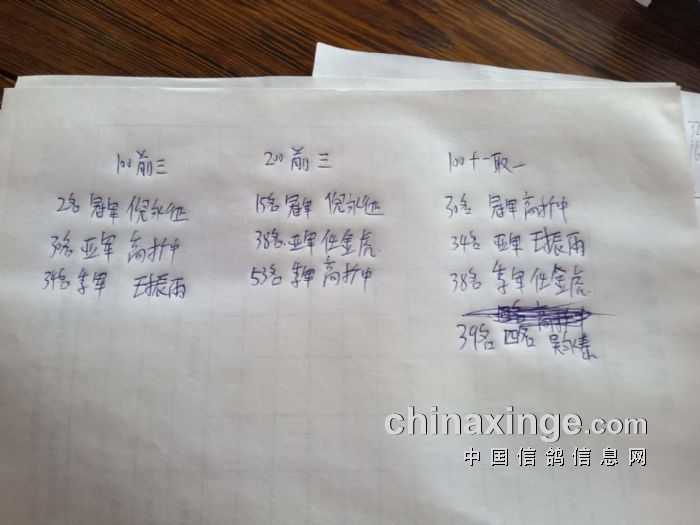 100前三
2名 冠军 倪永征
30名 亚军 高扩中
34名 季军 王振雨
200前三
15名 冠军 倪永征
38名 亚军 任金虎
53名 季军 高扩中
100十一取一
30名 冠军 高扩中
34名 亚军 王振雨
38名 季军 任金虎
39名 四名
chinaxinge.com
中国信鸽信息网